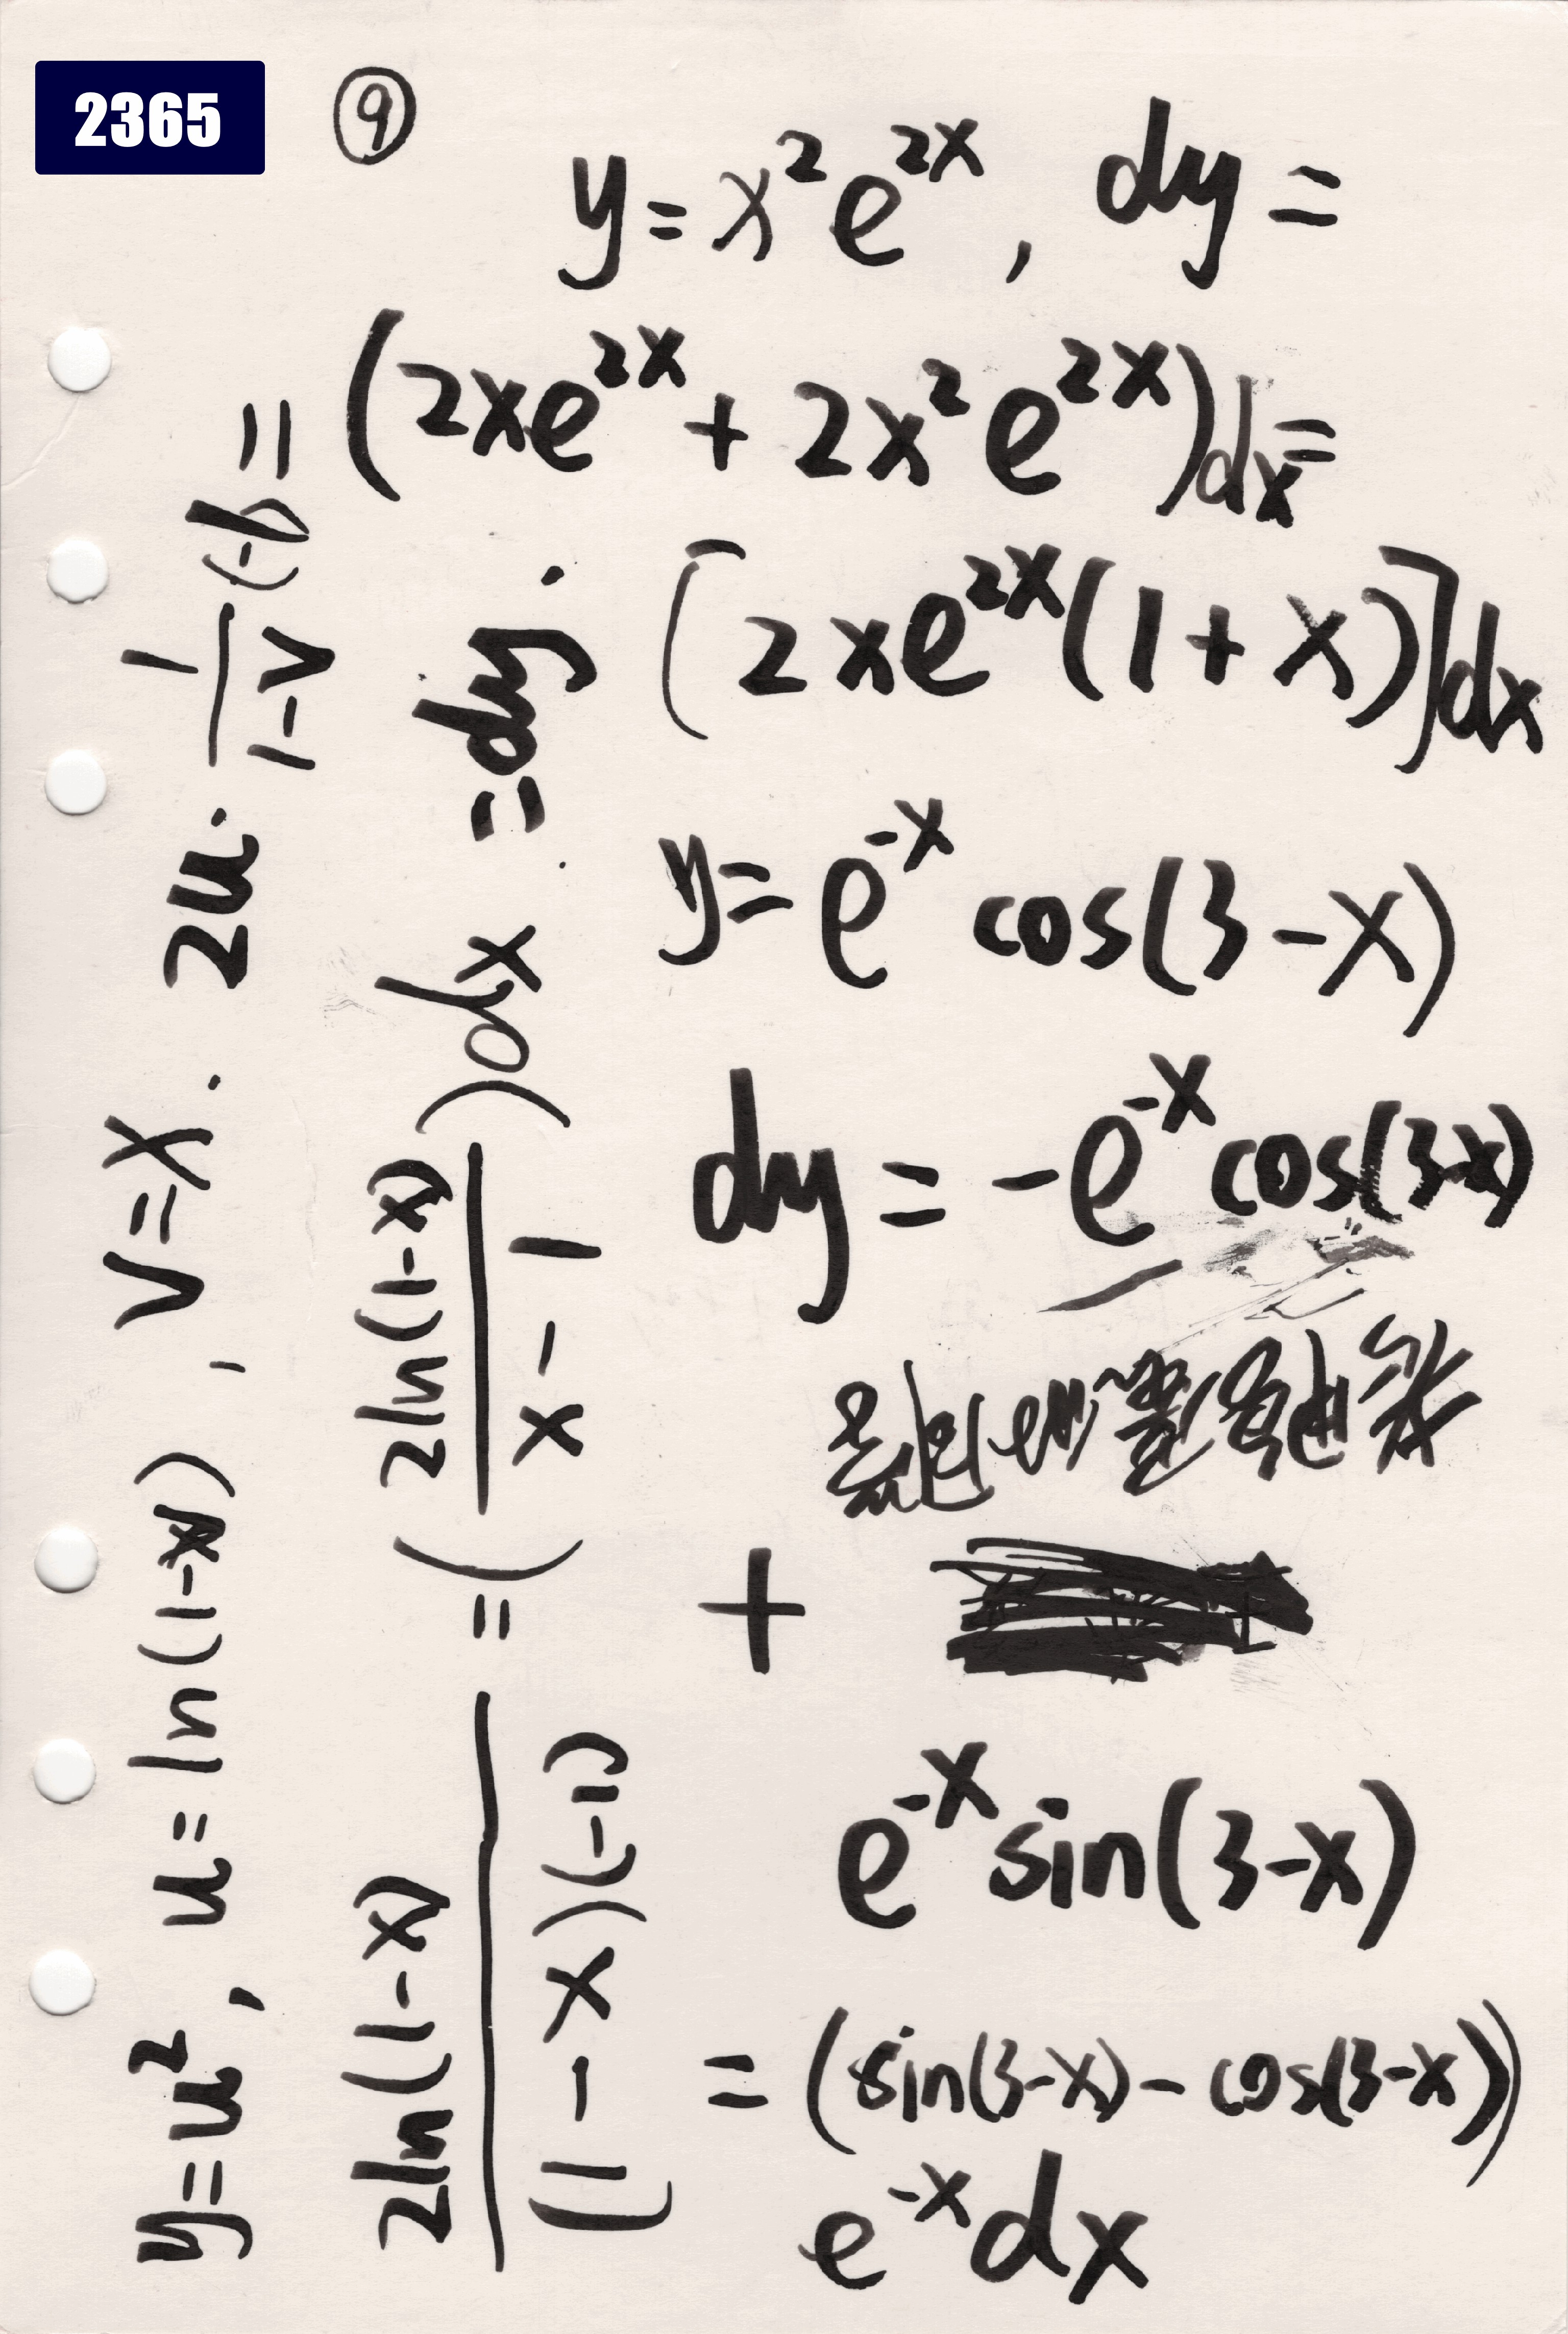 2365
⑨
y=x²e²ˣ, dy=
(2xe²ˣ+2x²e²ˣ)dx=
[2xe²ˣ(1+x)]dx
y=e⁻ˣcos(3-x)
dy=-e⁻ˣcos(3-x)
+
e⁻ˣsin(3-x)
=(sin(3-x)-cos(3-x))
e⁻ˣdx
y=u², u=ln(1-x), v=x. 2u·1/(1-v)(-1)=
2ln(1-x)/(1-x)(-1)=(2ln(1-x)/x-1)dx=dy.